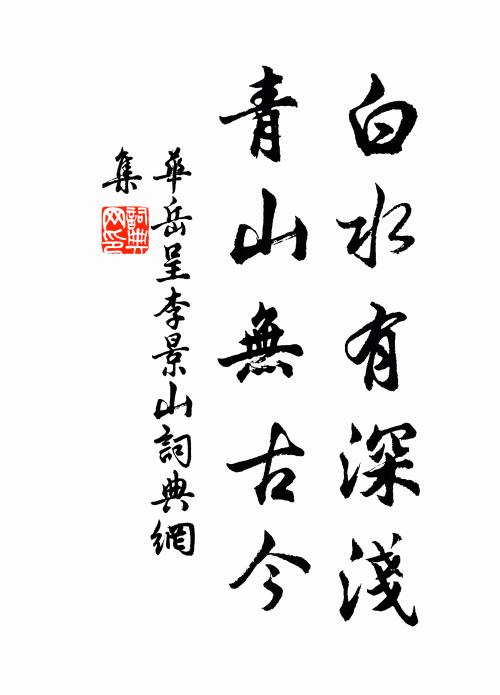 白水有深淺
青山無古今
華岳呈李景山詞典網
集
詞典
网印